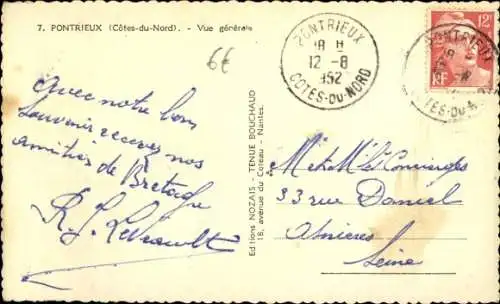 7. PONTRIEUX (Côtes-du-Nord). - Vue générale
6€
PONTRIEUX
18 H
12 - 8
1952
COTES-DU-NORD
12F
RF
PONTRIEUX
COTES-DU-NORD
Avec notre bon
souvenir recevez nos
amitiés de Bretagne
Editions NOZAIS - TENUE BOUCHAUD
18, avenue du Coteau - Nantes.
M et Mme Concierges
33 rue Daniel
Asnières
Seine